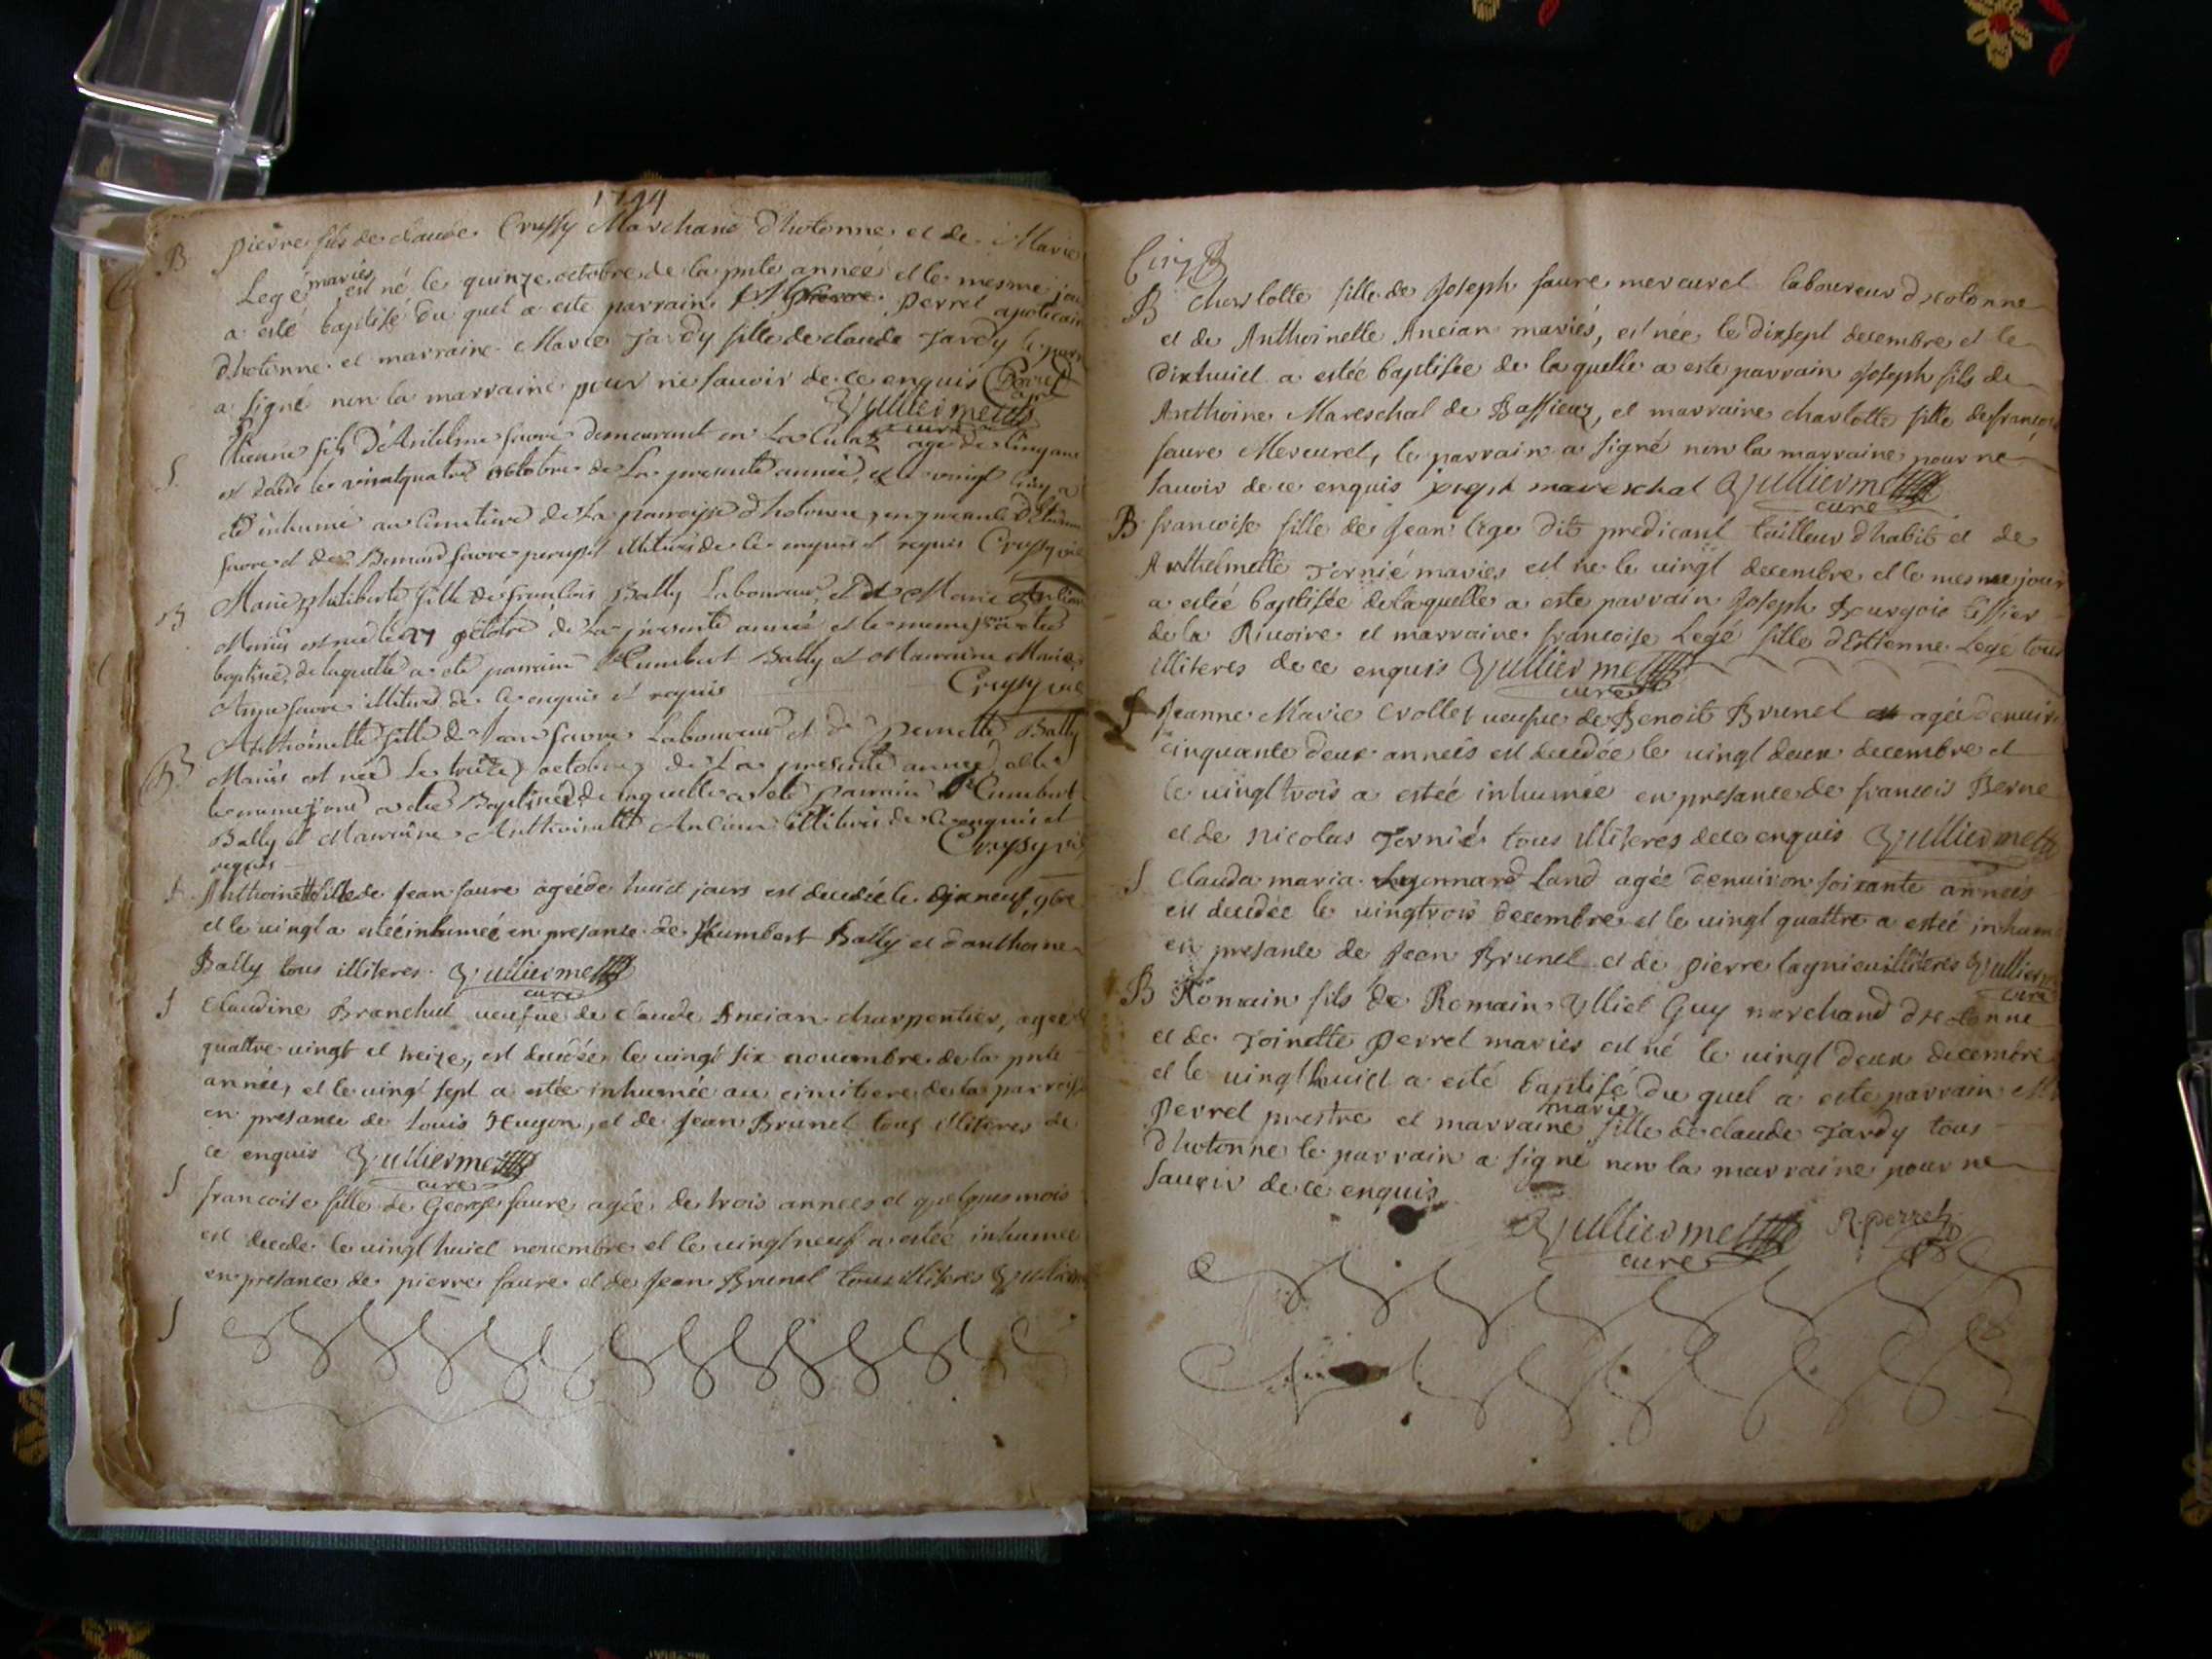 1744
B pierre fils de claude Crussy Marchand d'hotonne et de Marie
Legé mariés est né le quinze octobre de la pnte année et le mesme jour
a esté baptisé du quel a este parrain pierre perrel apoticaire
d'hotonne et marraine Marie Jardy fille de claude Jardy le parr
a signé non la marraine pour ne savoir de ce enquis
Vulliermet
curé
S Etienne fils d'Antelme favre demeurant en agé de cinq ans
est decedé le vingtquatre octobre de la presente année, et le vingt cinq a
été inhumé au cimetiere de la paroisse d'hotonne, en presence d'Etienne
favre et de Bernard favre illiteres de ce enquis et requis Crussy vic
B Marie philiberte fille de francois Bally Laboureur, et de Marie Ancian
Mariés est née le 27 octobre de la presente année et le meme jour a été
baptisée, de laquelle a été parrain Humbert Bally et Marraine Marie
Anne favre illiteres de ce enquis et requis
Crussy vic
B Anthoinette fille de Jean favre Laboureur et de pernette Bally
Mariés est née le octobre de la presente année et le
le meme jour a été Baptisée, de laquelle a été parrain Humbert
Bally et Marraine Anthoinette Ancian illiteres de ce enquis et
requis
Crussy vic
S Anthoinette fille de Jean faure agée de huict jours est decedée le dixneuf 9bre
et le vingt a estée inhumée en presance de Humbert Bally et d'anthoine
Bally tous illiteres. Vulliermet
curé
S Claudine Branchut veufue de claude Ancian charpentier, agée de
quattre vingt et treize, est decedée le vingt six novembre de la pnte
année, et le vingt sept a estée inhumée au cimitiere de la parroisse
en presance de Louis Hugon, et de Jean Brunel tous illiteres de
ce enquis Vulliermet
curé
S francoise fille de George faure agée de trois années et quelques mois
est decede le vingt huict novembre et le vingt neuf a estée inhumée
en presance de pierre faure et de Jean Brunel tous illiteres Vullierm
S
Cinq
B Charlotte fille de Joseph faure mercurel laboureur d'hotonne
et de Anthoinette Ancian mariés, est née le dixsept decembre et le
dixhuict a estée baptisée de laquelle a este parrain Joseph fils de
Anthoine Mareschal de Bassieux, et marraine charlotte fille de francois
faure Mercurel, le parrain a signé non la marraine pour ne
savoir de ce enquis joseph mareschal Vulliermet
curé
B francoise fille de Jean Lege dit predicant tailleur d'habit et de
Anthelmette Tornié mariés est ne le vingt decembre et le mesme jour
a estée baptisée de laquelle a este parrain Joseph Bourgois tissier
de la Rivoire et marraine francoise Legé fille d'Estienne Legé tous
illiteres de ce enquis Vulliermet
curé
S Jeanne Marie Crollet veufue de Benoit Brunel agée denviron
cinquante deux années est decedée le vingt deux decembre et
le vingt trois a estée inhumée en presance de francois Berne
et de Nicolas Tornié tous illiteres de ce enquis Vulliermet
S Clauda maria Land agée denviron soixante années
est decedée le vingtrois decembre et le vingt quattre a estée inhume
en presance de Jean Brunel et de pierre lagnieu illiteres Vullierm
curé
B Romain fils de Romain Ulliet Guy marchand d'hotonne
et de Toinette perrel mariés est né le vingt deux decembre
et le vingt huict a esté baptisé du quel a este parrain Mr
perrel prestre et marraine marie fille de claude Jardy tous
d'hotonne le parrain a signé non la marraine pour ne
savoir de ce enquis
Vulliermet R. perrel
curé